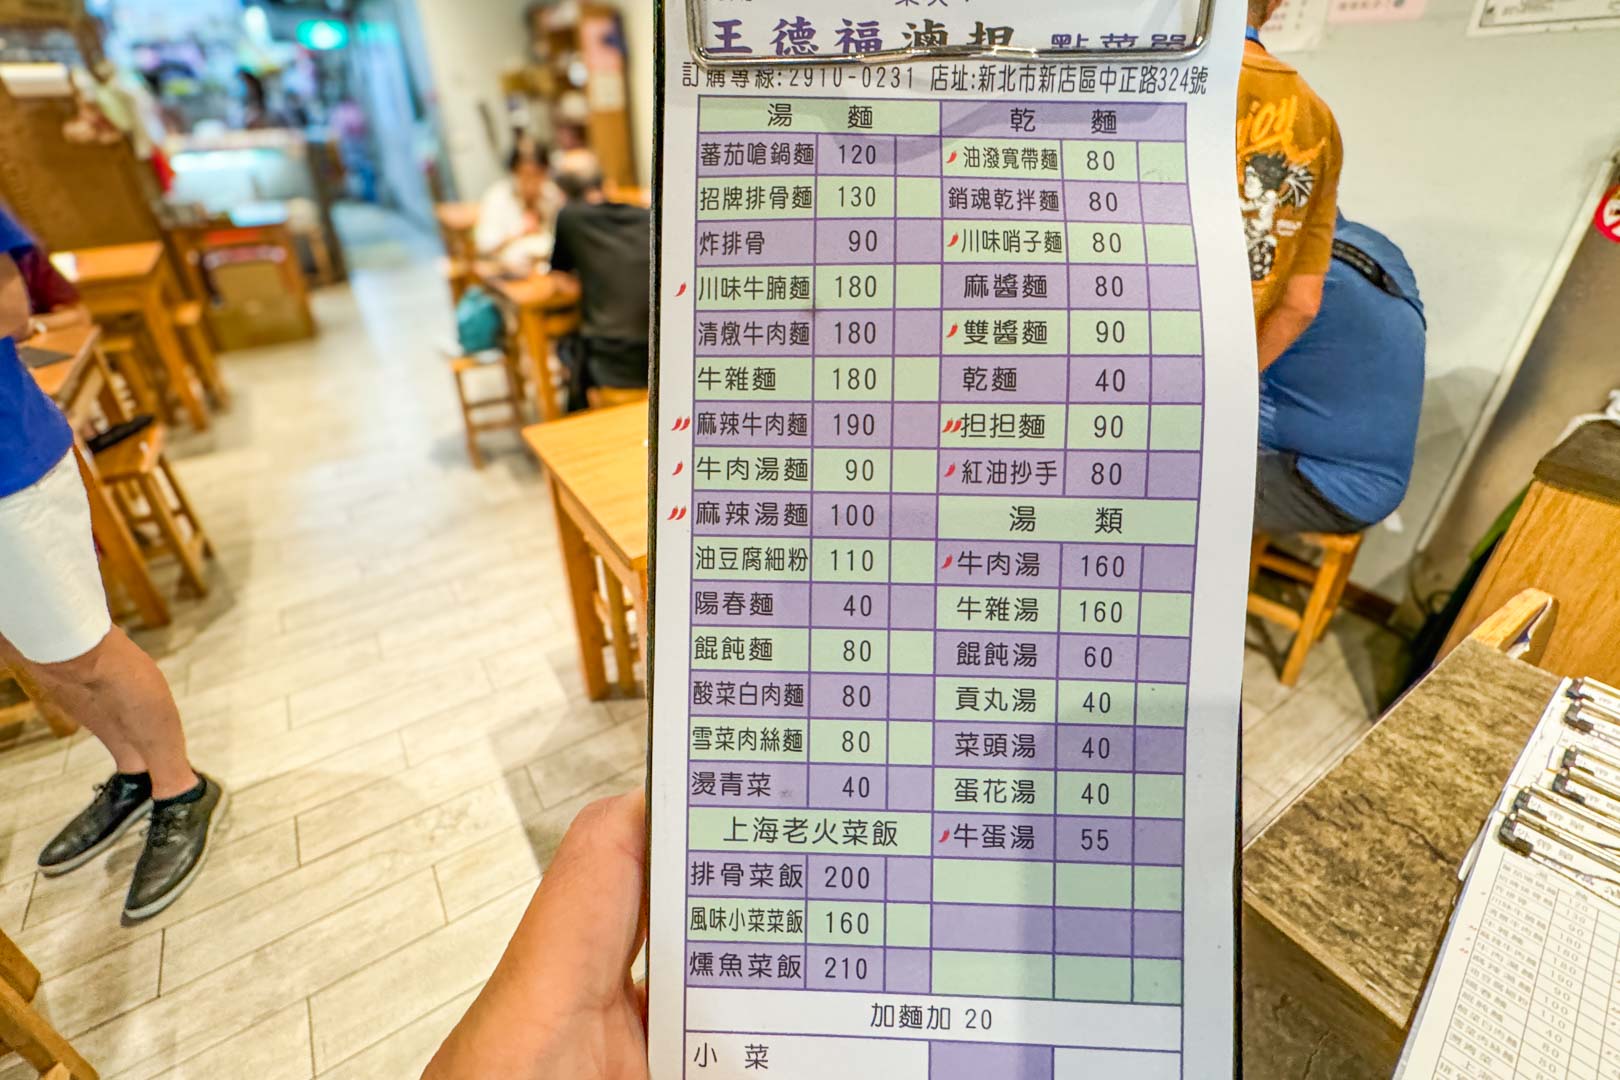 王德福滷担 點菜單
訂購專線:2910-0231 店址:新北市新店區中正路324號
湯 麵
蕃茄嗆鍋麵 120
招牌排骨麵 130
炸排骨 90
川味牛腩麵 180
清燉牛肉麵 180
牛雜麵 180
麻辣牛肉麵 190
牛肉湯麵 90
麻辣湯麵 100
油豆腐細粉 110
陽春麵 40
餛飩麵 80
酸菜白肉麵 80
雪菜肉絲麵 80
燙青菜 40
上海老火菜飯
排骨菜飯 200
風味小菜菜飯 160
燻魚菜飯 210
乾 麵
油潑寬帶麵 80
銷魂乾拌麵 80
川味哨子麵 80
麻醬麵 80
雙醬麵 90
乾麵 40
担担麵 90
紅油抄手 80
湯 類
牛肉湯 160
牛雜湯 160
餛飩湯 60
貢丸湯 40
菜頭湯 40
蛋花湯 40
牛蛋湯 55
加麵加 20
小 菜